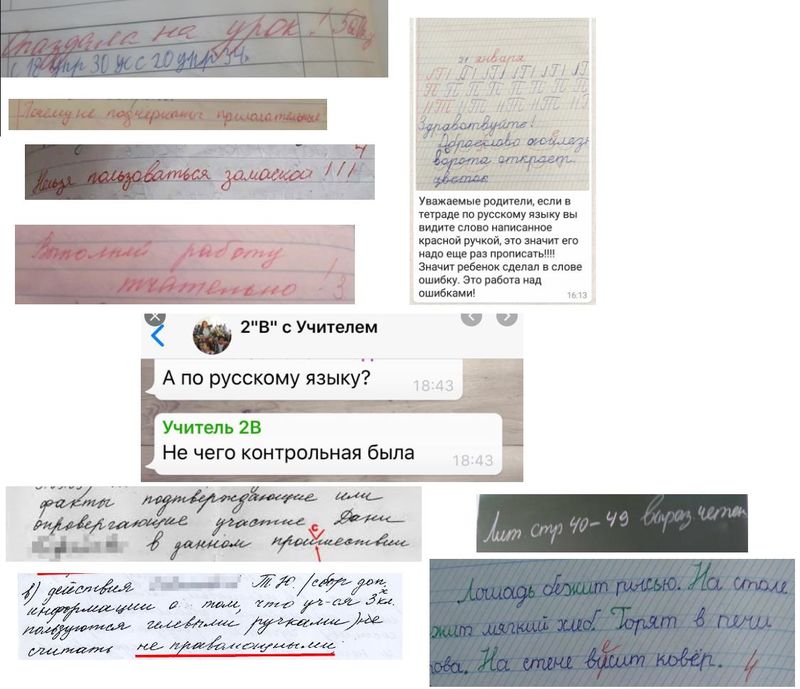 Опаздала на урок !
с 18 упр 30 с 20 упр 34.
Почему не прилагательные
4
Нельзя пользоваться замаской !!!
Выполняй работу
тчательно ! 3
21 января
Здравствуйте!
ворота откроет.
цветок
Уважаемые родители, если в
тетраде по русскому языку вы
видите слово написанное
красной ручкой, это значит его
надо еще раз прописать!!!!
Значит ребенок сделал в слове
ошибку. Это работа над
ошибками!
16:13
2"В" с Учителем
А по русскому языку?
18:43
Учитель 2В
Не чего контрольная была
18:43
факты подтверждающие или
опровергающие участие Дани
с
в данном проишествии
в) действия Т Ю (сбор доп.
информации о том, что уч-ся 3 кл.
пользуются гелевыми ручками) не
считать не правомощными.
Лит стр 40-49 выраз четен
Лошадь бежит рысью. На столе
жит мягкий хлеб. Горят в печи
рова. На стене висит ковёр. 4